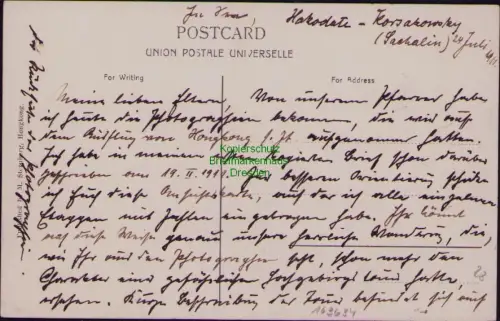 In See, Hakodate - Korsakowsky
(Sachalin) 24 Juli
POSTCARD
UNION POSTALE UNIVERSELLE
For Writing
For Address
Meine lieben Eltern, Von unserem Pfarrer habe
ich heute die Photographien bekommen, die wir auf
dem Ausflug von Hongkong aufgenommen hatten.
Ich habe in meinem Brief schon darüber
geschrieben vom 19. II. 1911. Zur besseren Orientierung schicke
ich Euch diese Ansichtskarte, auf der ich alle einzelnen
Etappen mit Zahlen eingetragen habe. Ihr könnt
auf diese Weise genau unsere herrliche Wanderung, die,
wie Ihr aus den Photographien seht, schon mehr den
Charakter eines gefährlichen Hochgebirgs hatte,
ersehen. Kurze Beschreibung der Tour befindet sich auf
der Rückseite der
M. Sternberg, Hongkong.
Kopierschutz
Briefmarkenhaus
Dresden
28
162624